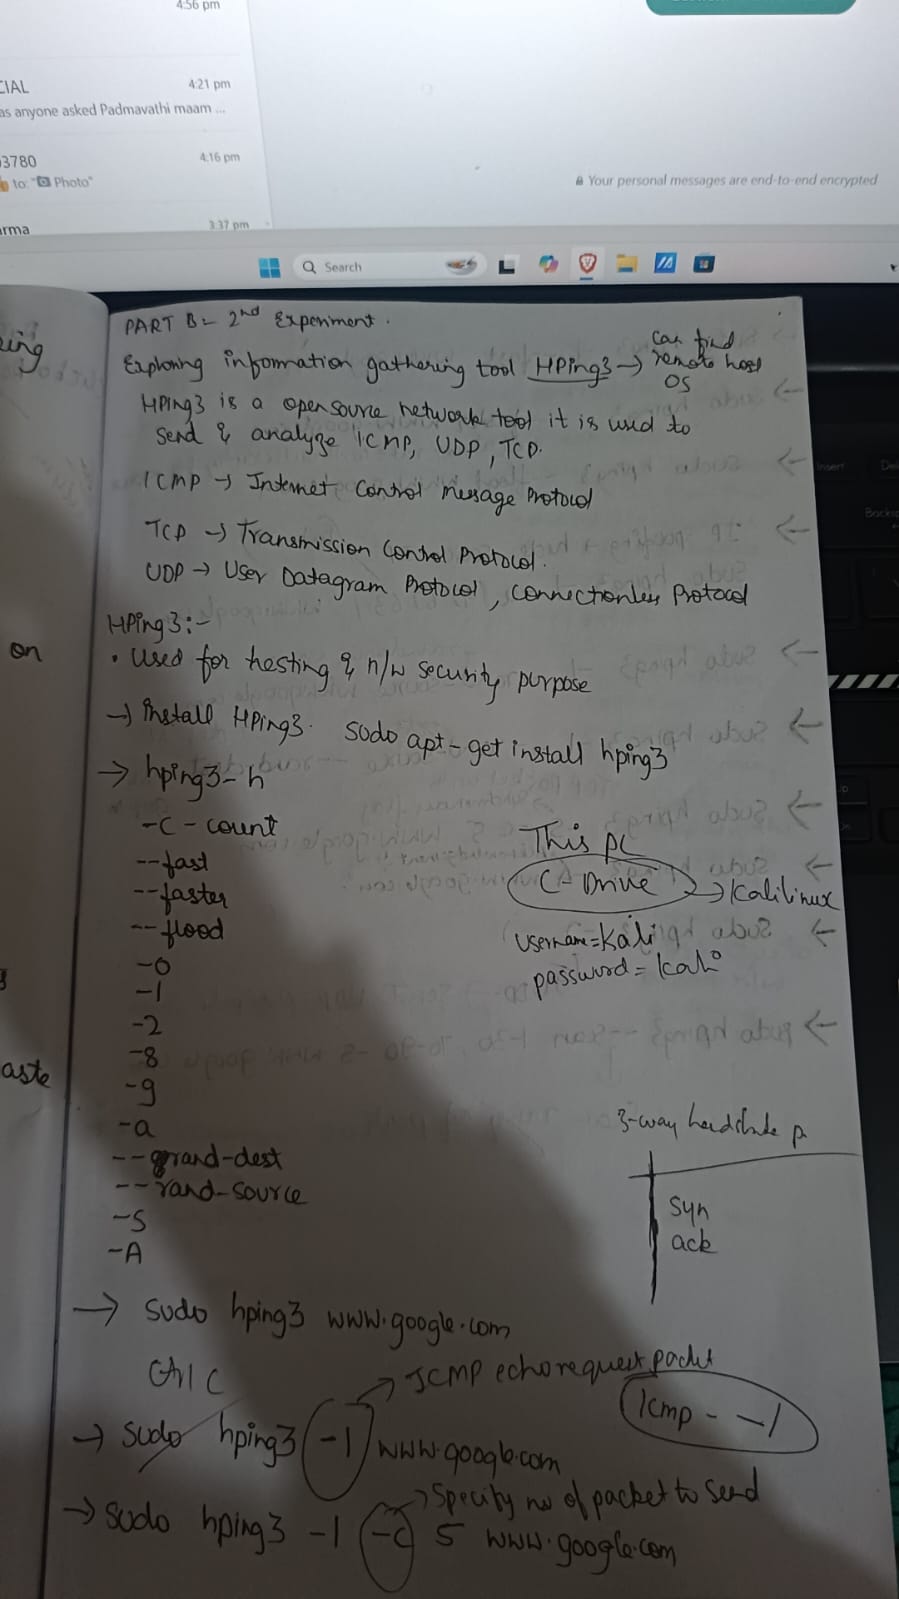 4:56 pm
CIAL
4:21 pm
as anyone asked Padmavathi maam ...
03780
4:16 pm
to: "Photo"
Your personal messages are end-to-end encrypted
arma
3:37 pm
Search
PART B:- 2nd Experiment.
Exploring information gathering tool HPing3 → can find remote host OS
HPing3 is a opensource network tool it is used to
send & analyze ICMP, UDP, TCP.
ICMP → Internet Control Message Protocol
TCP → Transmission Control Protocol.
UDP → User Datagram Protocol, Connectionless Protocol
HPing3:-
• Used for testing & n/w security purpose
→ Install HPing3. sudo apt-get install hping3
→ hping3-h
-c - count
--fast
--faster
--flood
-0
-1
-2
-8
-9
-a
--rand-dest
--rand-source
-S
-A
This PC
C-Drive → Kalilinux
username=Kali
password=kali
3-way handshake p
syn
ack
→ sudo hping3 www.google.com
Ctrl C
→ ICMP echo request packet
→ sudo hping3 -1 www.google.com
Icmp - -1
→ Specify no of packet to send
→ sudo hping3 -1 -c 5 www.google.com
ing
on
aste
Insert
Del
Backsp